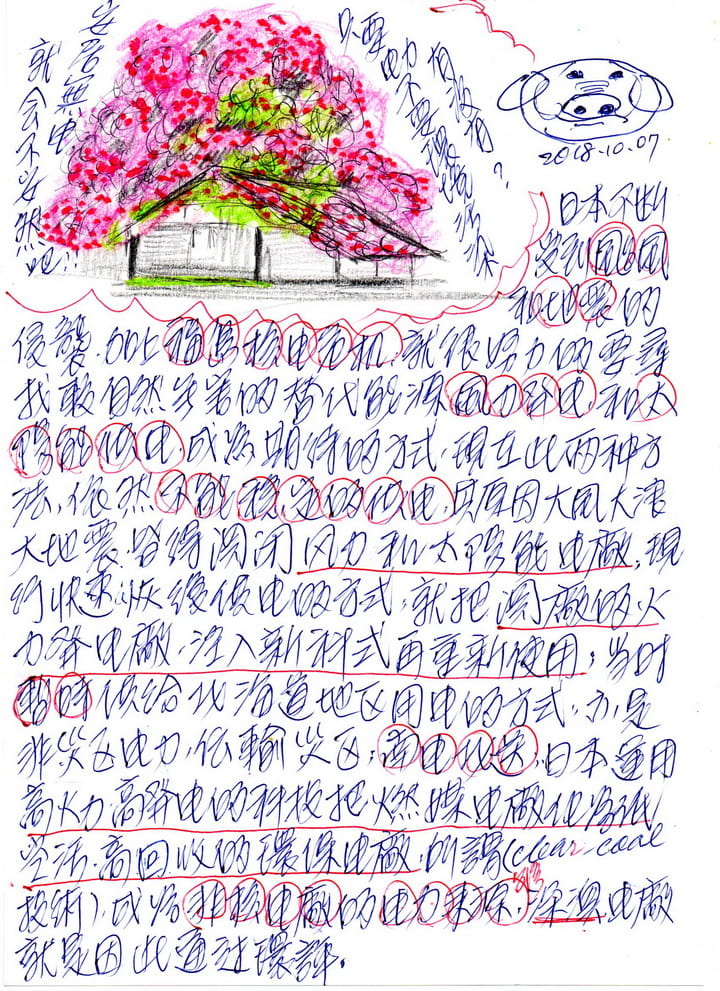 安居無电
就会不安然地!!
只醒电力
2018.10.07
日本不断
受到風颱風
和地震的
侵襲.加上福島核电危机.就很努力的要尋
找敵自然失害的替代能源風力發电.和太
陽能供电.成為期待的方式.現在此兩种方
法.依然不能穩定的供电.其原因大風大浪
大地震.皆得関闭风力和太陽能电廠.現
行快速恢復供电的方式.就把関廠的火
力發电廠.注入新科式再重新使用;当時
暫時供給北海道地区用电的方式.亦是
非災区电力.伝輸災区;南电北送.日本運用
高火力.高發电的科技把燃煤电廠化為低
污活.高回收的環保电廠.所謂(clear coal
技術).成為非核电廠的电力來源.深澳电廠
就是因此通过環評.